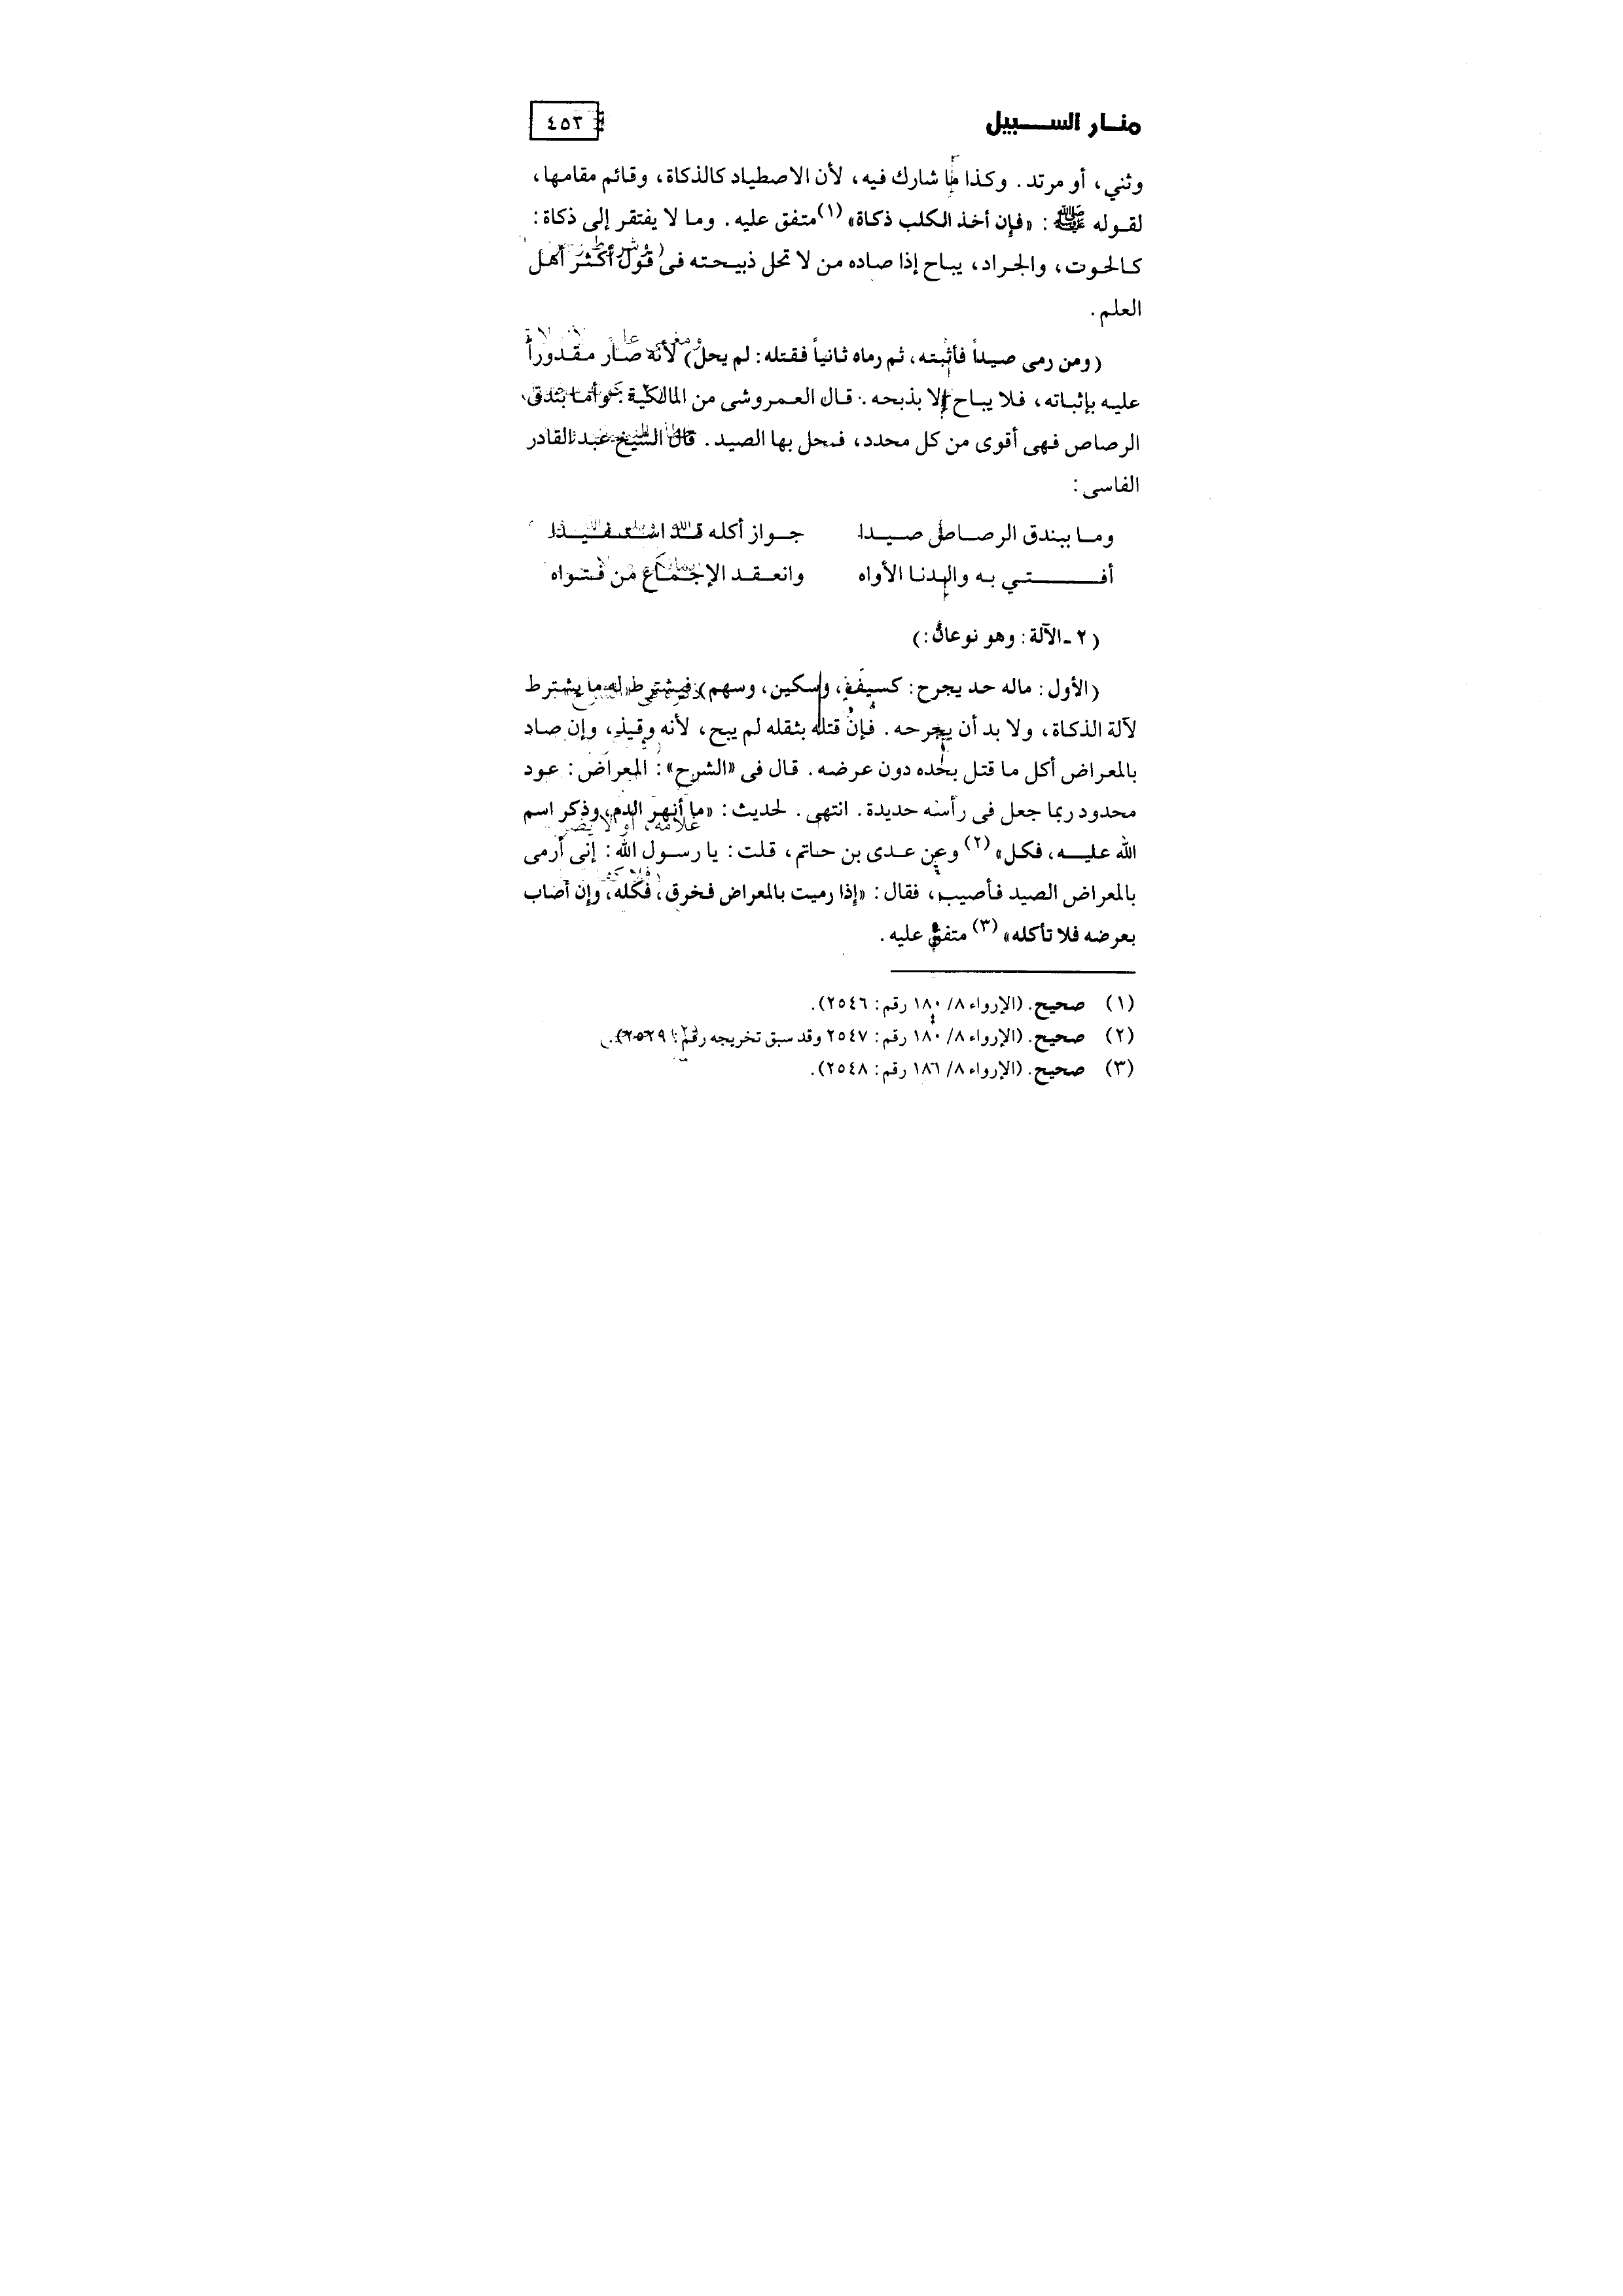 منار السبيل
٤٥٣
وثني، أو مرتد. وكذا ما شارك فيه، لأن الاصطياد كالذكاة، وقائم مقامها،
لقوله ﷺ: «فإن أخذ الكلب ذكاة» (١) متفق عليه. وما لا يفتقر إلى ذكاة:
كالحوت، والجراد، يباح إذا صاده من لا تحل ذبيحته فى قول أكثر أهل
العلم.
(ومن رمى صيداً فأثبته، ثم رماه ثانياً فقتله: لم يحل) لأنه صار مقدوراً
عليه بإثباته، فلا يباح إلا بذبحه. قال العمروشى من المالكية: وأما بندق
الرصاص فهى أقوى من كل محدد، فيحل بها الصيد. قال الشيخ عبد القادر
الفاسى:
وما ببندق الرصاص صيدا جواز أكله قد استفيدا
أفتي به والدنا الأواه وانعقد الإجماع من فتواه
(٢ - الآلة: وهو نوعان:)
(الأول: ماله حد يجرح: كسيف، وسكين، وسهم) فيشترط له ما يشترط
لآلة الذكاة، ولا بد أن يجرحه. فإن قتله بثقله لم يبح، لأنه وقيذ، وإن صاد
بالمعراض أكل ما قتل بحده دون عرضه. قال فى «الشرح»: المعراض: عود
محدود ربما جعل فى رأسه حديدة. انتهى. لحديث: «ما أنهر الدم، وذكر اسم
الله عليه، فكل» (٢) وعن عدى بن حاتم، قلت: يا رسول الله: إنى أرمى
بالمعراض الصيد فأصيب، فقال: «إذا رميت بالمعراض فخرق، فكله، وإن أصاب
بعرضه فلا تأكله» (٣) متفق عليه.
(١) صحيح. (الإرواء ٨/ ١٨٠ رقم: ٢٥٤٦).
(٢) صحيح. (الإرواء ٨/ ١٨٠ رقم: ٢٥٤٧ وقد سبق تخريجه رقم: ٢٥٢٩).
(٣) صحيح. (الإرواء ٨/ ١٨٦ رقم: ٢٥٤٨).